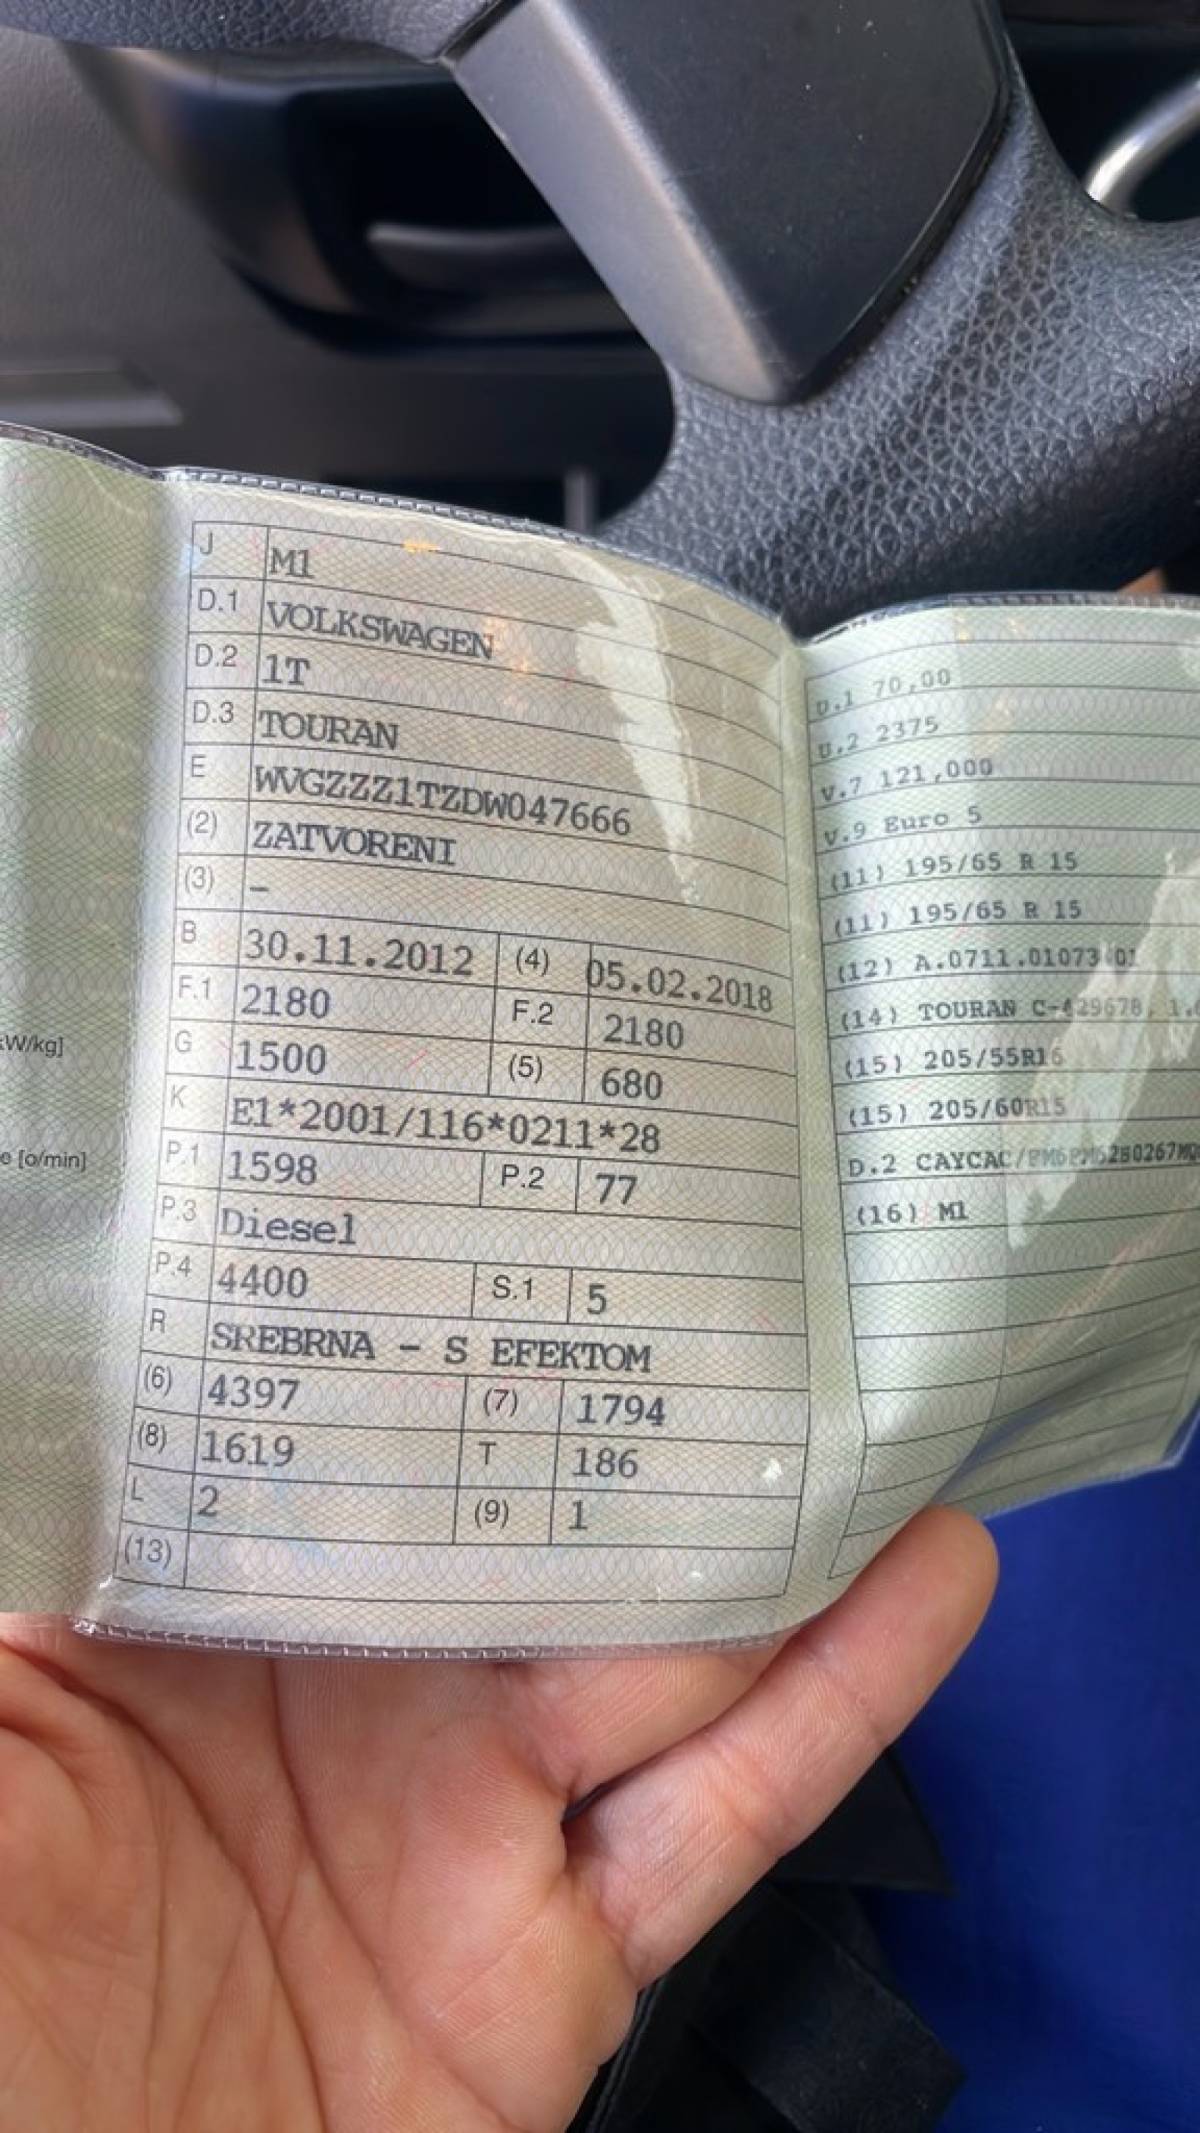 kW/kg]
e [o/min]
J M1
D.1 VOLKSWAGEN
D.2 1T
D.3 TOURAN
E WVGZZZ1TZDW047666
(2) ZATVORENI
(3) –
B 30.11.2012 (4) 05.02.2018
F.1 2180 F.2 2180
G 1500 (5) 680
K E1*2001/116*0211*28
P.1 1598 P.2 77
P.3 Diesel
P.4 4400 S.1 5
R SREBRNA – S EFEKTOM
(6) 4397 (7) 1794
(8) 1619 T 186
L 2 (9) 1
(13)
U.1 70,00
U.2 2375
V.7 121,000
V.9 Euro 5
(11) 195/65 R 15
(11) 195/65 R 15
(12) A.0711.01073 01
(14) TOURAN C-429678, 1.
(15) 205/55R16
(15) 205/60R15
D.2 CAYCAC/
(16) M1